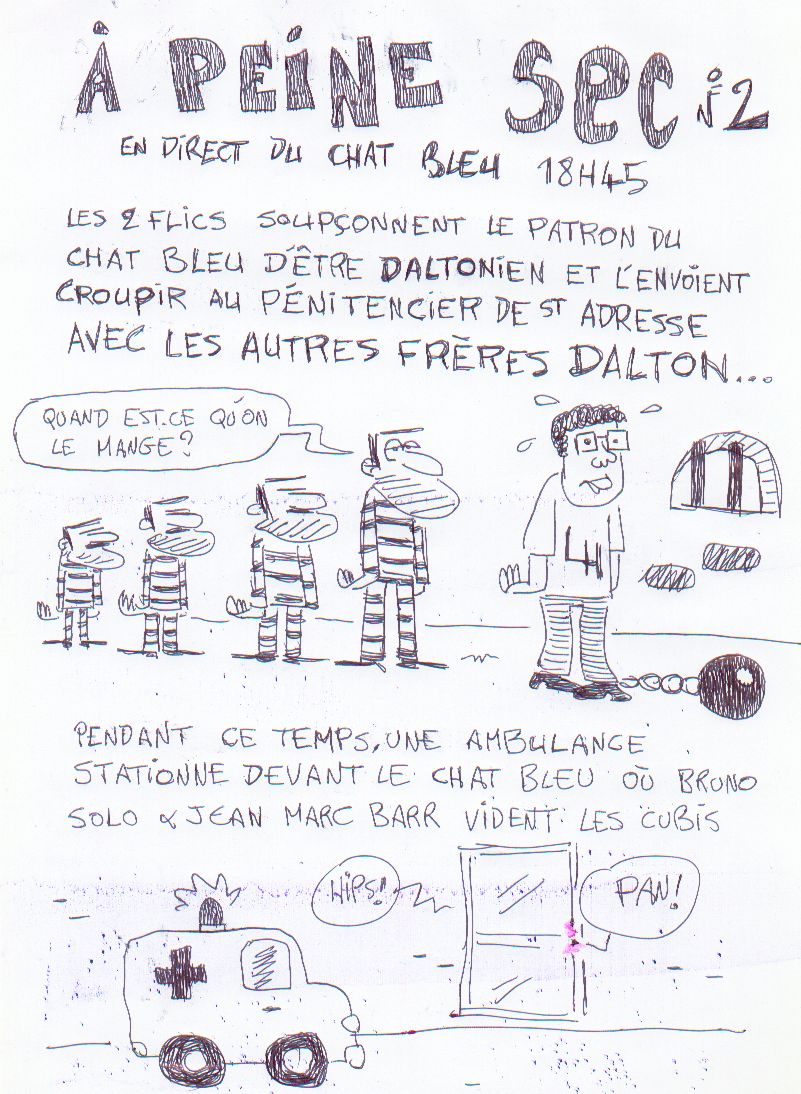 À PEINE SEC N°2
EN DIRECT DU CHAT BLEU 18H45
LES 2 FLICS SOUPÇONNENT LE PATRON DU
CHAT BLEU D'ÊTRE DALTONIEN ET L'ENVOIENT
CROUPIR AU PÉNITENCIER DE ST ADRESSE
AVEC LES AUTRES FRÈRES DALTON...
QUAND EST-CE QU'ON
LE MANGE?
4
PENDANT CE TEMPS, UNE AMBULANCE
STATIONNE DEVANT LE CHAT BLEU OÙ BRUNO
SOLO & JEAN MARC BARR VIDENT LES CUBIS
HIPS!
PAN!